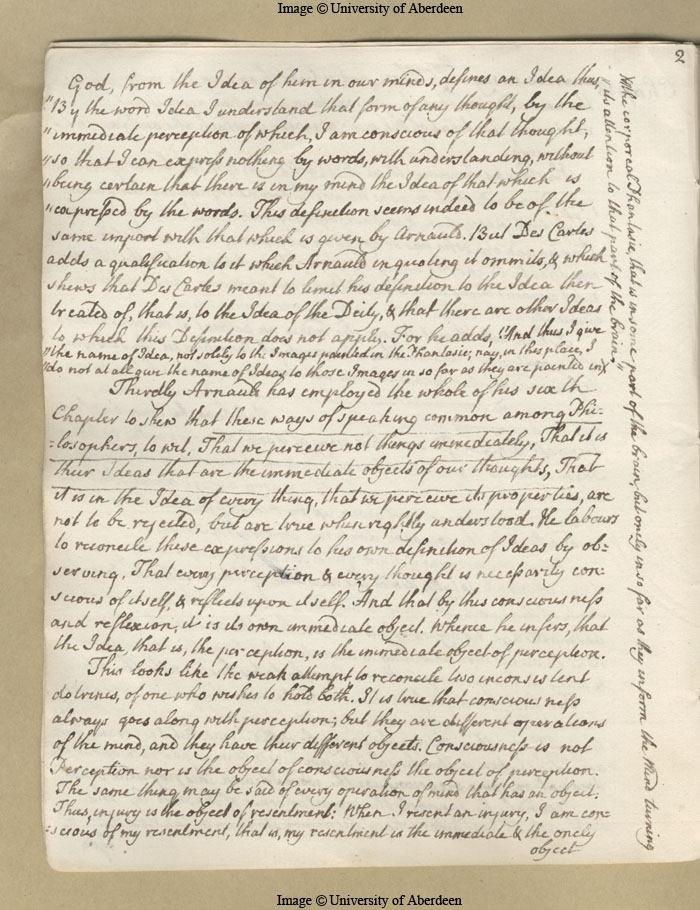 Image © University of Aberdeen
2
God, from the Idea of him in our minds, defines an Idea thus,
"By the word Idea I understand that form of any thought, by the
"immediate perception of which, I am conscious of that thought;
"so that I can express nothing by words, with understanding, without
"being certain that there is in my mind the Idea of that which is
"expressed by the words. This definition seems indeed to be of the
same import with that which is given by Arnauld. But Des Cartes
adds a qualification to it which Arnauld in quoting it ommits, & which
shews that Des Cartes meant to limit his definition to the Idea then
treated of, that is, to the Idea of the Deity, & that there are other Ideas
to which this Definition does not apply. For he adds, "And thus I give
"the name of Idea, not solely to the Images painted in the Phantasie; nay, in this place, I
"do not at all give the name of Ideas to those Images in so far as they are painted in
Thirdly Arnauld has employed the whole of his sixth
Chapter to shew that these ways of speaking common among Phi-
-losophers, to wit, That we perceive not things immediately, That it is
their Ideas that are the immediate objects of our thoughts, That
it is in the Idea of every thing, that we perceive its properties, are
not to be rejected, but are true when rightly understood. He labours
to reconcile these expressions to his own definition of Ideas by ob-
serving, That every perception & every thought is necessarily con-
scious of itself, & reflects upon itself. And that by this consciousness
and reflexion, it is its own immediate object. Whence he infers, that
the Idea, that is, the perception, is the immediate object of perception.
This looks like the weak attempt to reconcile two inconsistent
doctrines, of one who wishes to hold both. It is true that consciousness
always goes along with perception; but they are different operations
of the mind, and they have their different objects. Consciousness is not
Perception nor is the object of consciousness the object of perception.
The same thing may be said of every operation of mind that has an object.
Thus, injury is the object of resentment: When I resent an injury, I am con-
-scious of my resentment, that is, my resentment is the immediate & the onely
object
the corporeal Phantasie, that is in some part of the brain, but onely in so far as they inform the Mind turning
its attention to that part of the brain."
Image © University of Aberdeen